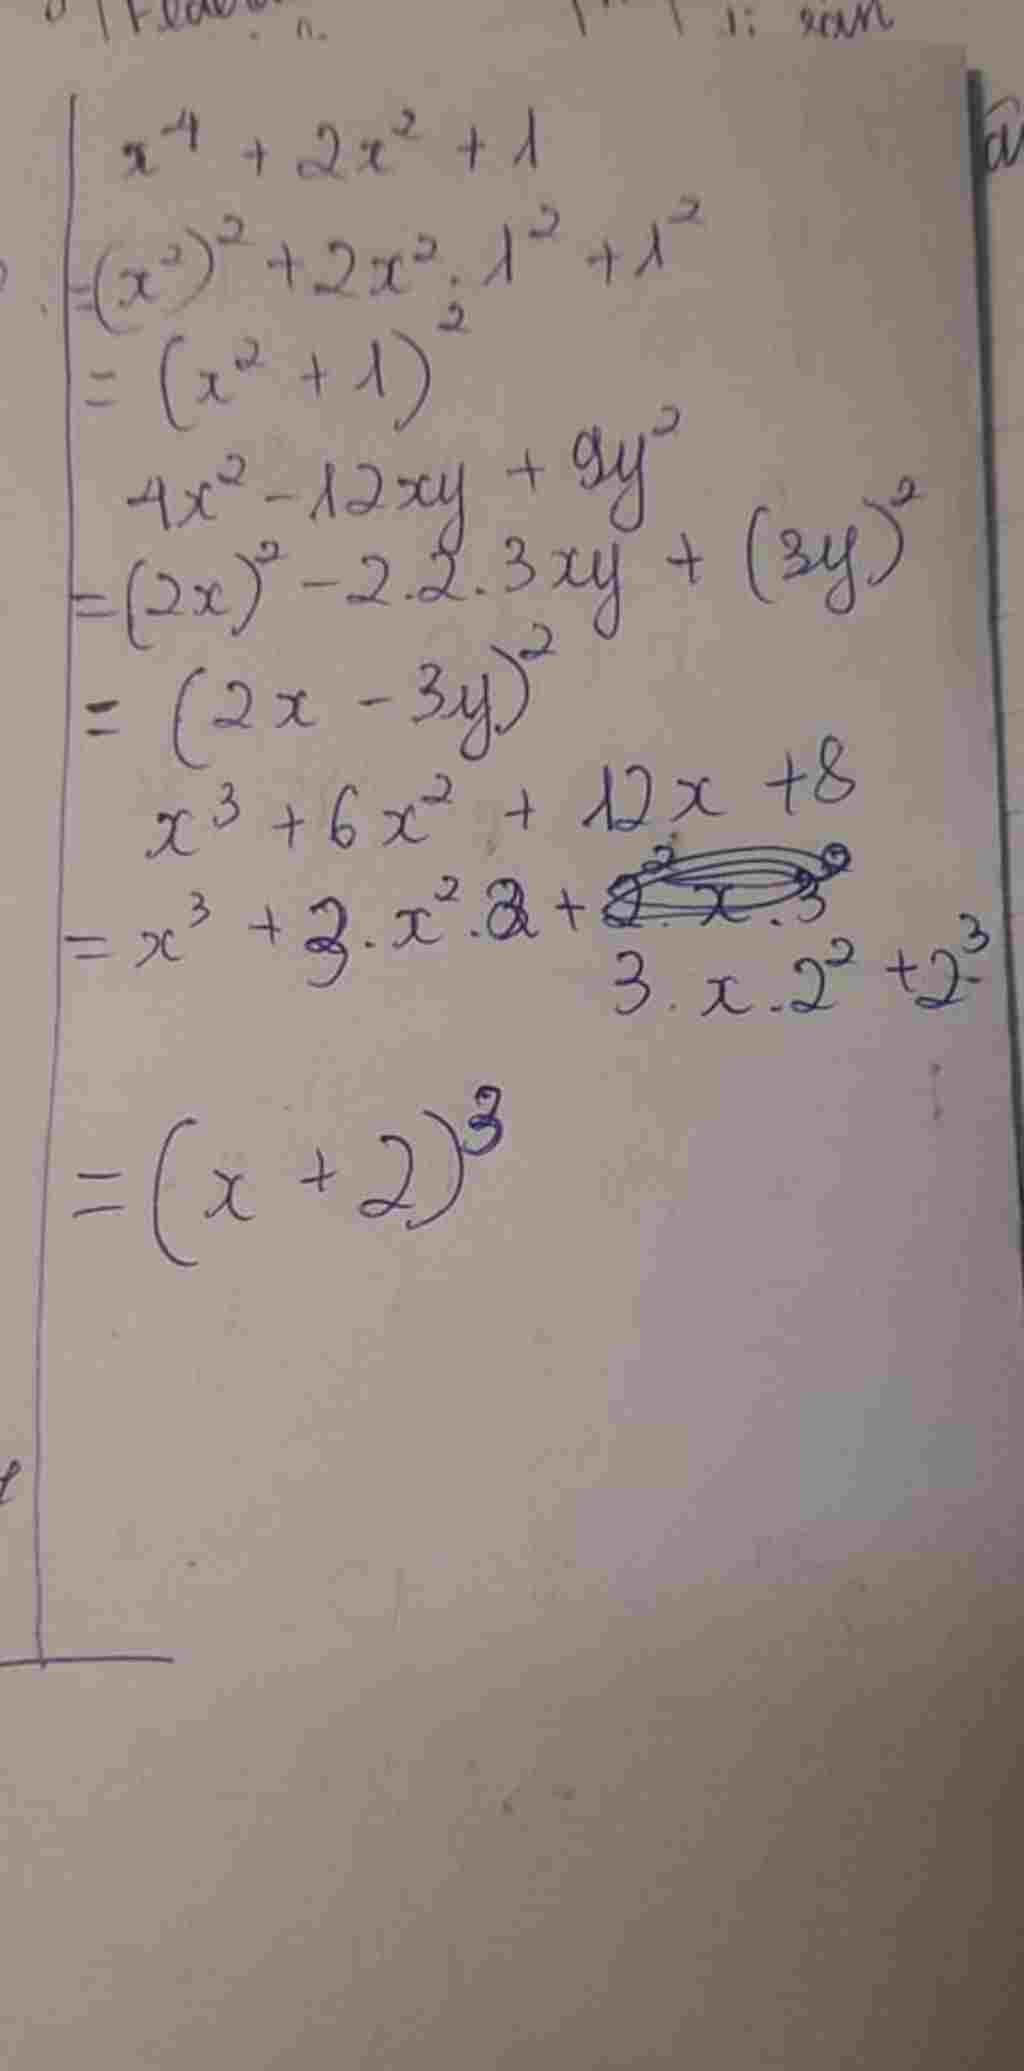 x⁴ + 2x² + 1
=(x²)² + 2x². 1² + 1²
= (x² + 1)²
4x² - 12xy + 9y²
= (2x)² - 2.2.3xy + (3y)²
= (2x - 3y)²
x³ + 6x² + 12x + 8
= x³ + 3. x². 2 +
3. x. 2² + 2³
= (x + 2)³